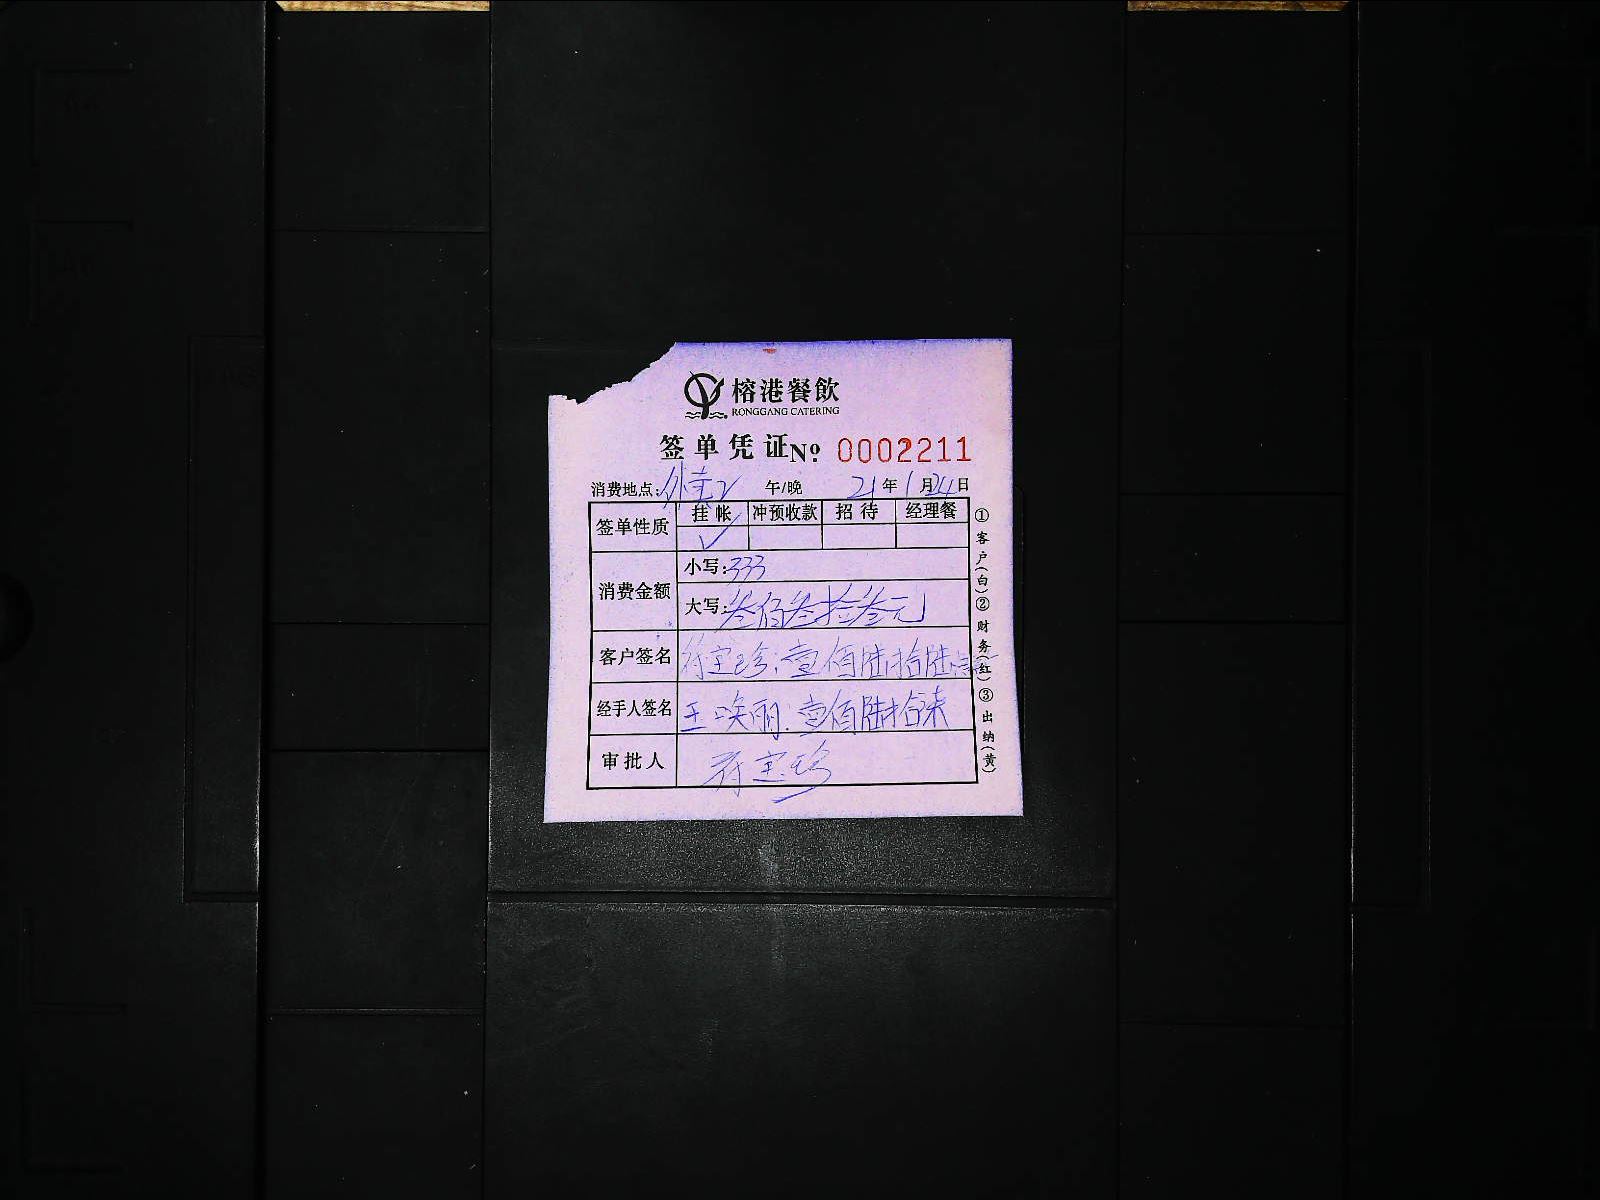 榕港餐飲
RONGGANG CATERING
签单凭证 No. 0002211
消费地点: 午/晚 21年1月24日
签单性质 挂帐 冲预收款 招待 经理餐
✓
消费金额 小写: 333
大写: 叁佰叁拾叁元
客户签名 符宝珍: 壹佰陆拾陆
经手人签名 王唤丽: 壹佰陆拾柒
审批人 符宝珍
①客户(白)②财务(红)③出纳(黄)